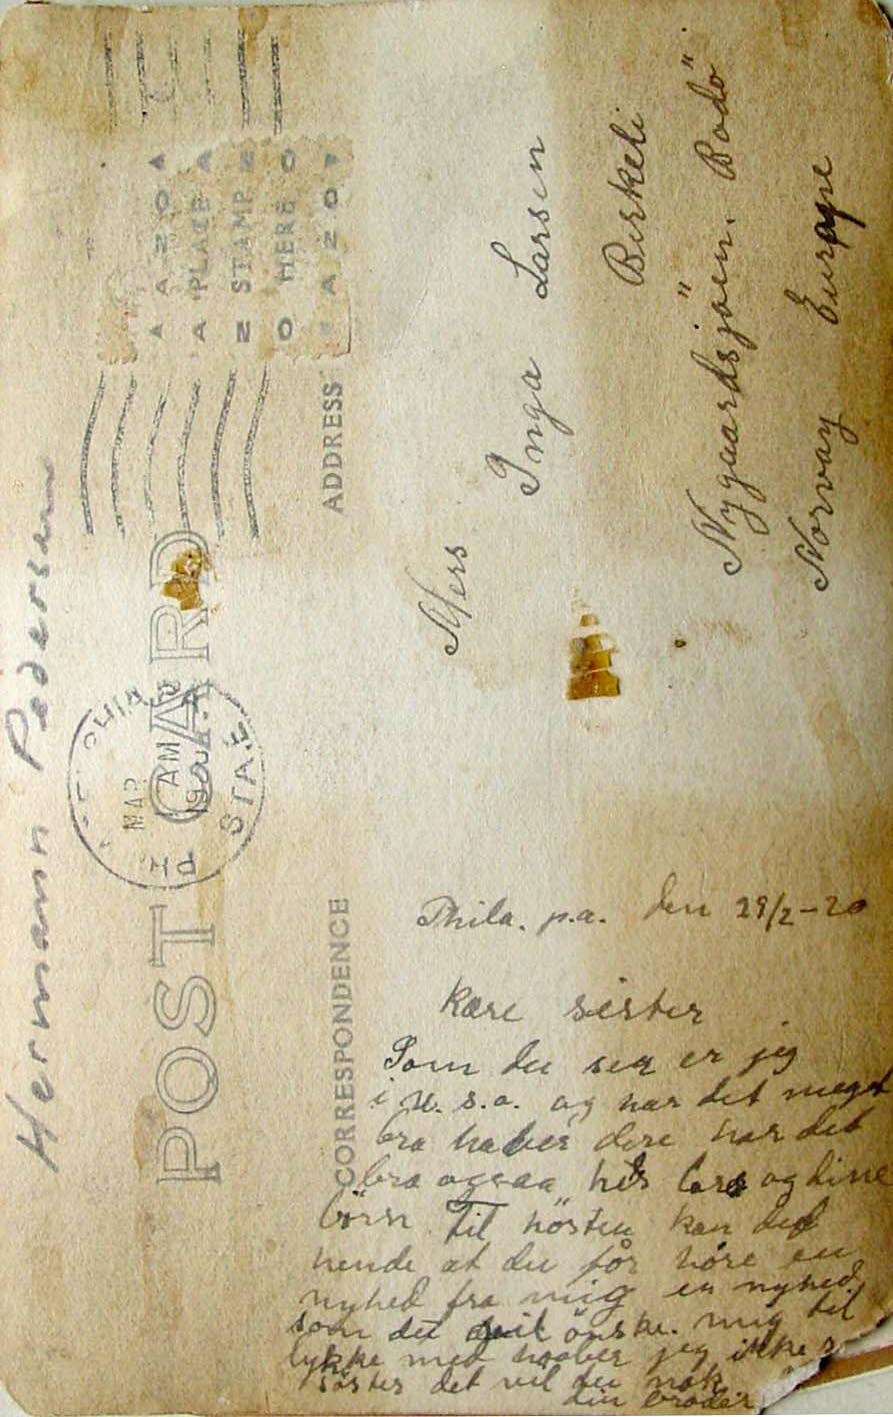 Hermann Pedersen
POST CARD
PHIA
MAR
AM
STA.E
AZO
PLACE
STAMP
HERE
AZO
CORRESPONDENCE
ADDRESS
Mers
Inga Larsen
Birkeli
Nygaardsjöen. Bodö
Norvay Europe
Phila. p.a. den 29/2-20
Kære sister
Som du ser er jeg
i U.S.A. og har det meget
bra haber dere har det
bra ogsaa hils Lars og dine
börn Til hösten kan det
hende at du får höre en
nyhed fra mig en nyhed
som du vil önske mig til
lykke med haaber jeg ikke
söster det vil du nok
din broder